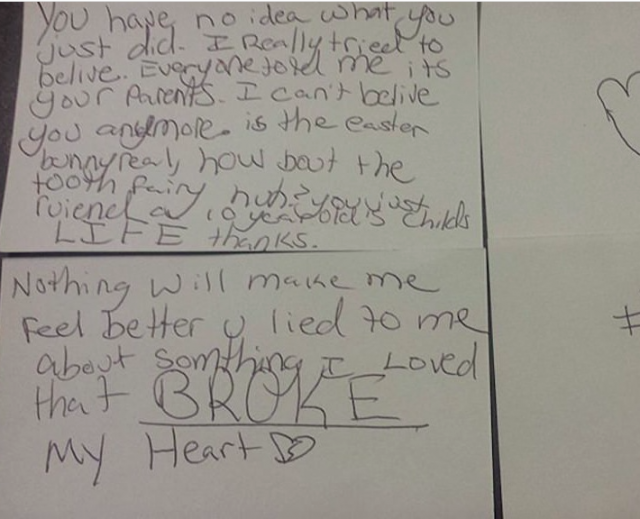 You have no idea what you
just did. I Really tried to
belive. Everyone told me its
your Parents. I can't belive
you anymore. is the easter
bunny real, how bout the
tooth fairy huh? you just
ruiend a 10 year old's childs
LIFE thanks.
Nothing will make me
feel better u lied to me
about somthing I Loved
that BROKE
My Heart